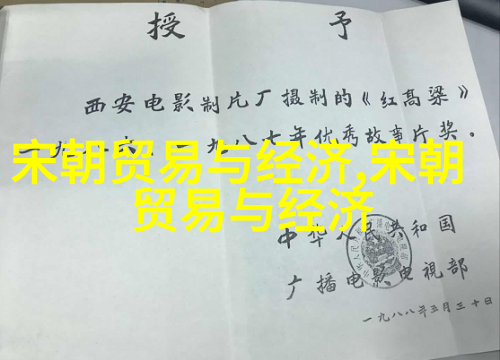 授 予
西安电影制片厂摄制的《红高粱》
一九八六 一九八七年优秀故事片奖。
宋朝贸易与经济,宋朝
贸易与经济
中华人民共和国
广播电影电視部
一九八八年三月三十日